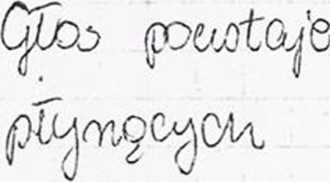 Głos powstaje
płynących